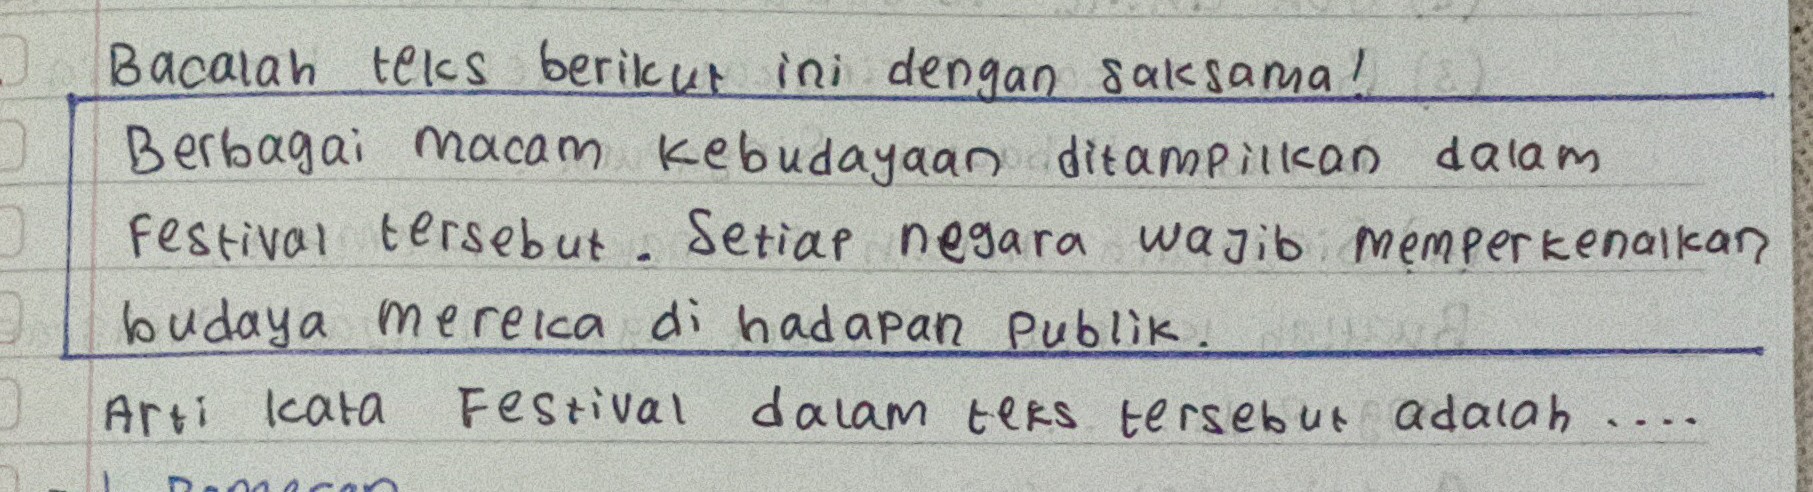 Bacalah teks berikut ini dengan saksama!
Berbagai macam kebudayaan ditampilkan dalam
Festival tersebut. Setiap negara wajib memperkenalkan
budaya mereka di hadapan publik.
Arti kata Festival dalam teks tersebut adalah ....